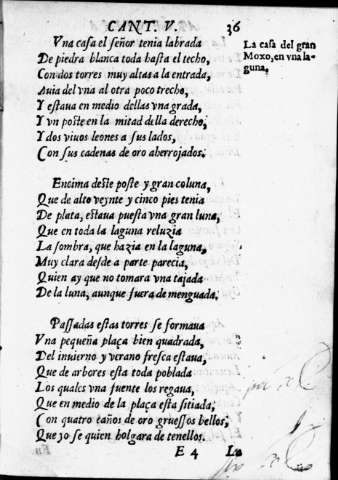 CANT. V. 36
Vna casa el señor tenia labrada
De piedra blanca toda hasta el techo,
Con dos torres muy altas a la entrada,
Auia del vna al otra poco trecho,
Y estaua en medio dellas vna grada,
Y vn poste en la mitad della derecho,
Y dos viuos leones a sus lados,
Con sus cadenas de oro aherrojados.
La casa del gran
Moxo, en vna la-
guna,
Encima deste poste y gran coluna,
Que de alto veynte y cinco pies tenia
De plata, estaua puesta vna gran luna,
Que en toda la laguna reluzia
La sombra, que hazia en la laguna,
Muy clara desde a parte parecia,
Quien ay que no tomara vna tajada
De la luna, aunque fuera de menguada.
Passadas estas torres se formaua
Vna pequeña plaça bien quadrada,
Del inuierno y verano fresca estaua,
Que de arbores esta toda poblada
Los quales vna fuente los regaua,
Que en medio de la plaça esta sitiada,
Con quatro caños de oro gruessos bellos,
Que yo se quien holgara de tenellos.
E 4 La